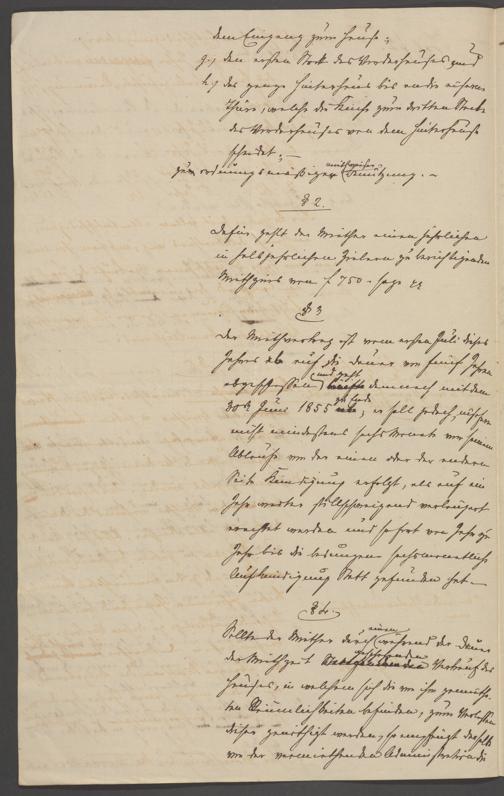 dem Eingang zum Hause;
g., den ersten Stock des Vorderhauses und
h., das ganze Hinterhaus bis an die äusserste
Thüre, welche die Küche zum dritten Stocke
des Vorderhauses von dem Hinterhause
scheidet; —
zur ordnungsmässigen miethweisen Benützung. —
§ 2.
Dafür zahlt der Miether einen jährlichen
in halbjährlichen Zielern zu berichtigenden
Miethzins von f 750 - sage
§ 3
Der Miethvertrag ist vom ersten Juli dieses
Jahres ab auf die Dauer von fünf Jahren
abgeschlossen und geht demnach mit dem
30ten Juni 1855 zu Ende; er soll jedoch, insofern
nicht mindestens sechs Monate vor seinem
Ablaufe von der einen oder der anderen
Seite Kündigung erfolgt, als auf ein
Jahr weiter stillschweigend verlängert
erachtet werden und sofort von Jahr zu
Jahr bis die bedungene sechsmonatliche
Aufkündigung statt gefunden hat. —
§ 4.
Sollte der Miether durch einen während der Dauer
der Miethzeit geschehenden Verkauf des
Hauses, in welchem sich die von ihm gemiethe-
ten Räumlichkeiten befinden, zum Verlassen
dieser genöthigt werden, so empfängt derselbe
von der vermiethenden Administration die